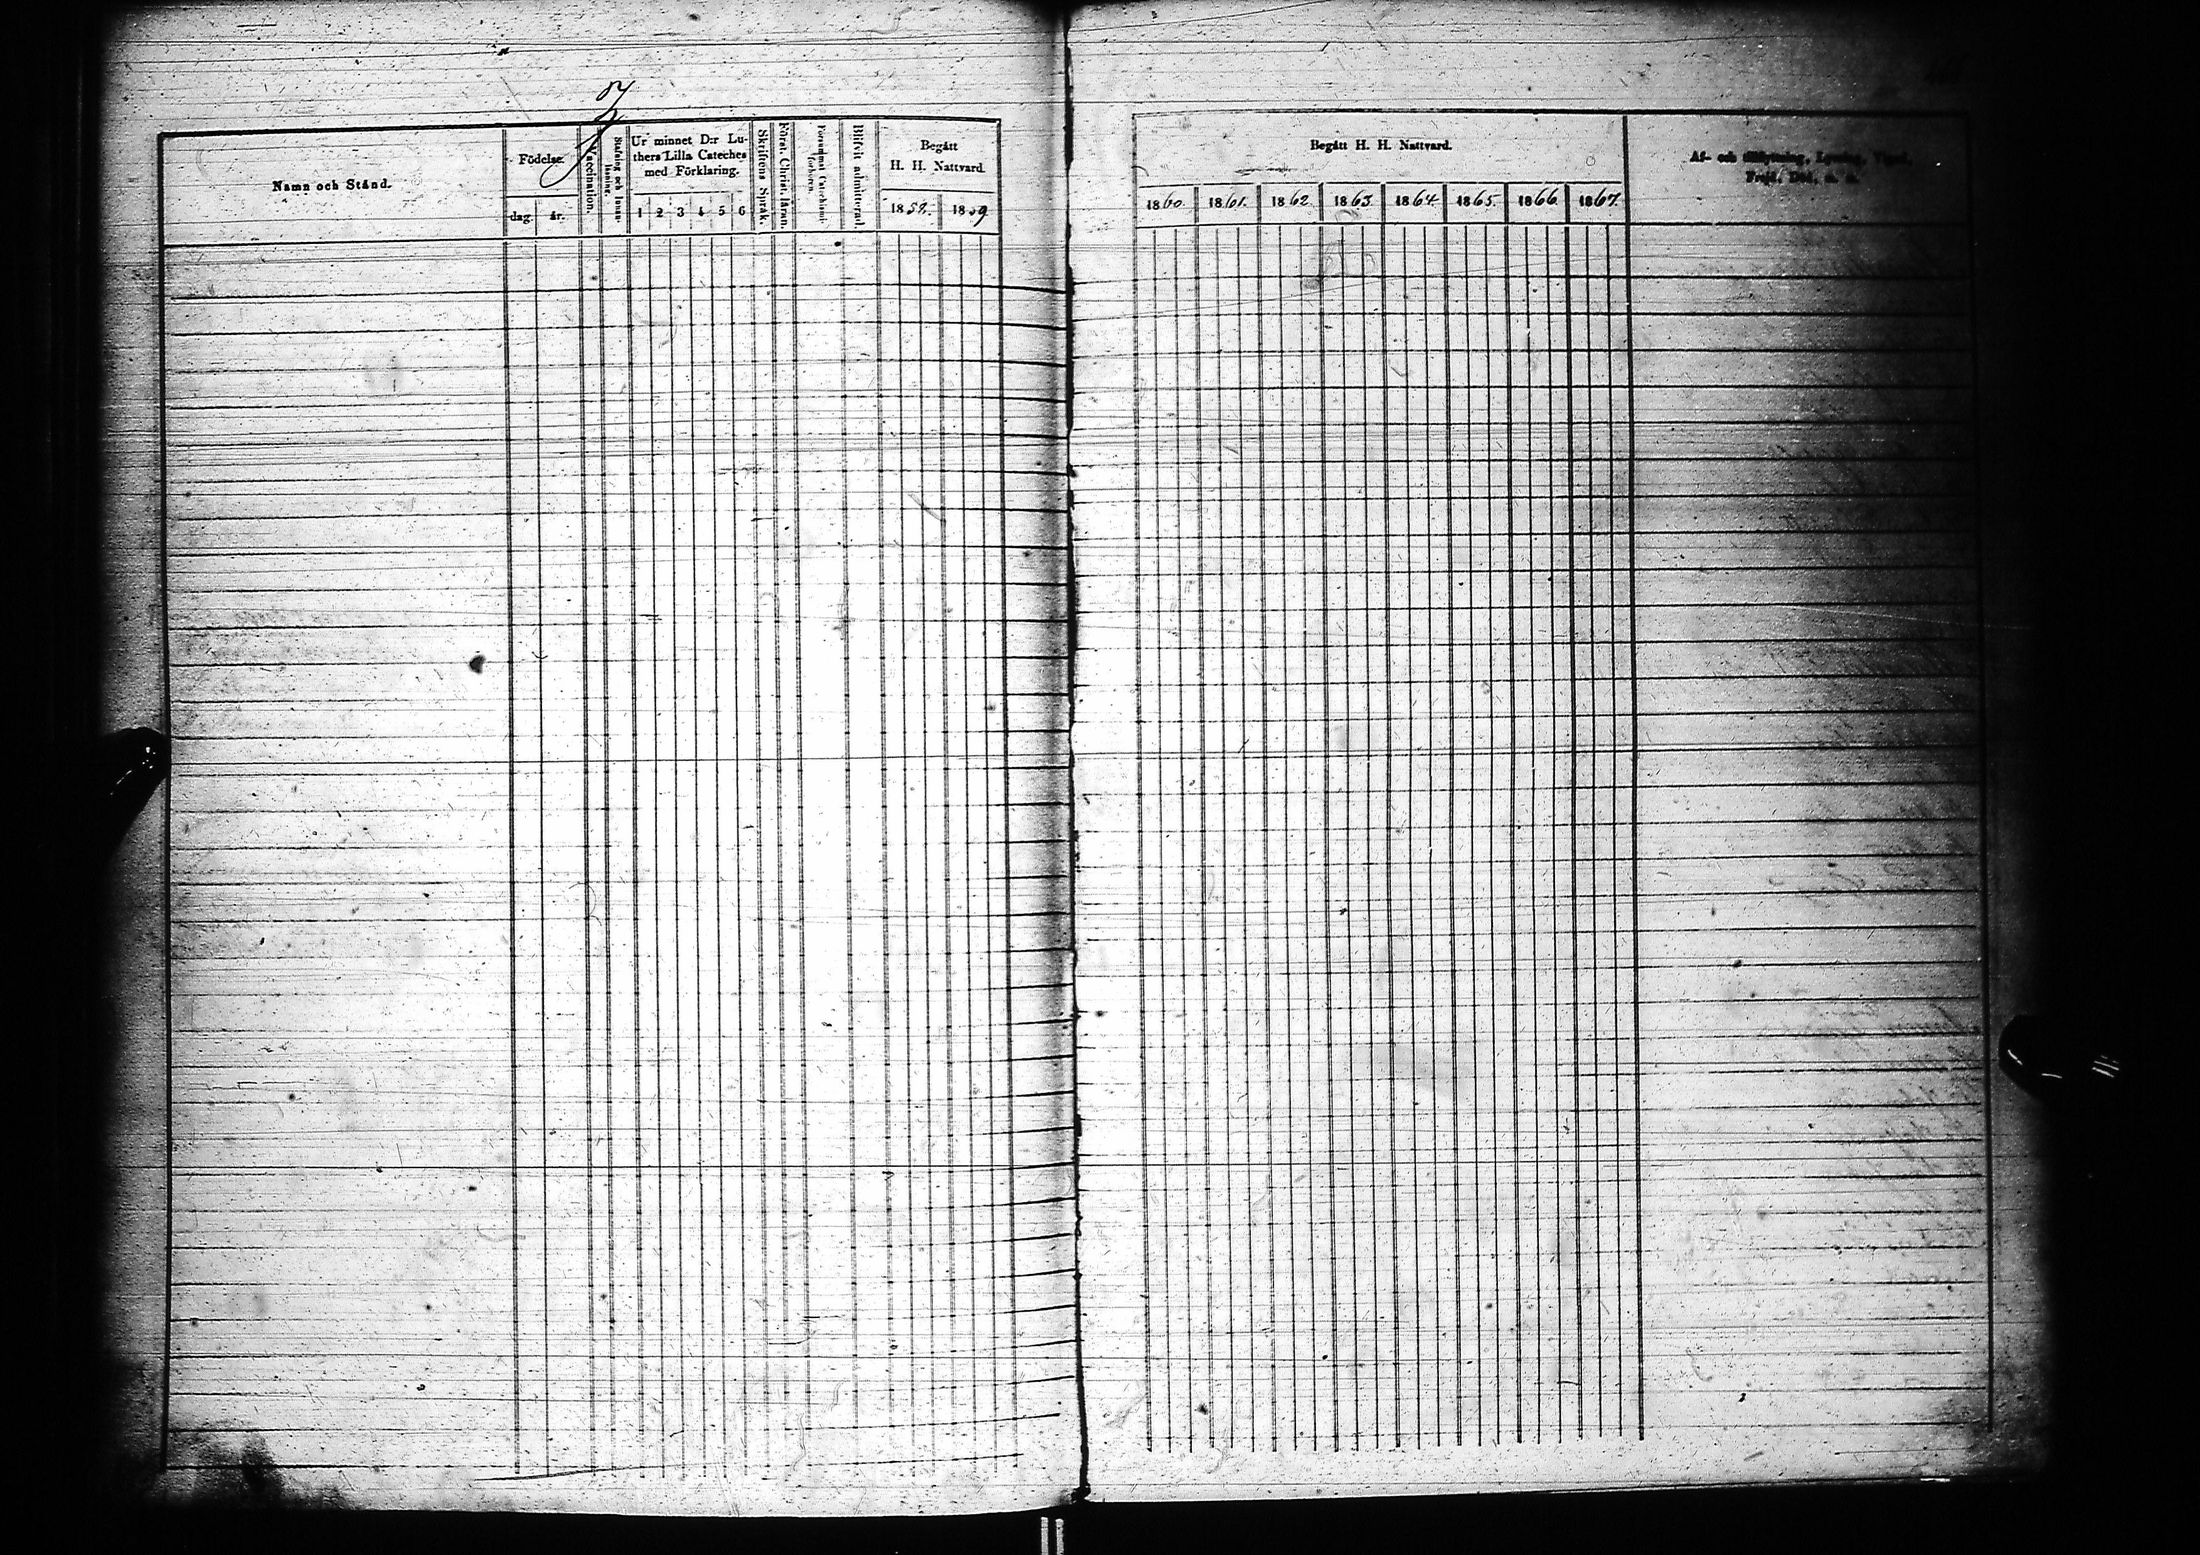 Namn och Stånd.
Födelse.
dag. år.
Vaccination.
Stafning och Innanläsning.
Ur minnet D:r Lu-
thers Lilla Cateches
med Förklaring.
1 2 3 4 5 6
Skriftens Språk.
Först. Christ. läran.
Försummat Catechismi-
förhören.
Blifvit admitterad.
Begått
H. H. Nattvard.
1858. 1859
Begått H. H. Nattvard.
1860. 1861. 1862 1863 1864 1865. 1866 1867.
Af- och Inflyttning, Lysning, Vigsel,
Frejd, Död, m. m.